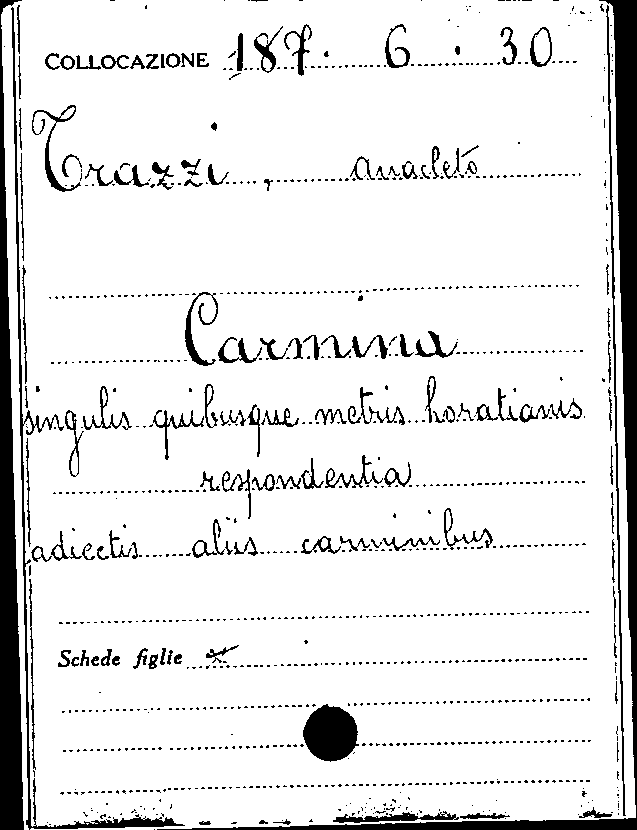 COLLOCAZIONE 187. 6. 30
Trazzi, Anacleto
Carmina
singulis quibusque metris horatianis
respondentia
adiectis aliis carminibus
Schede figlie